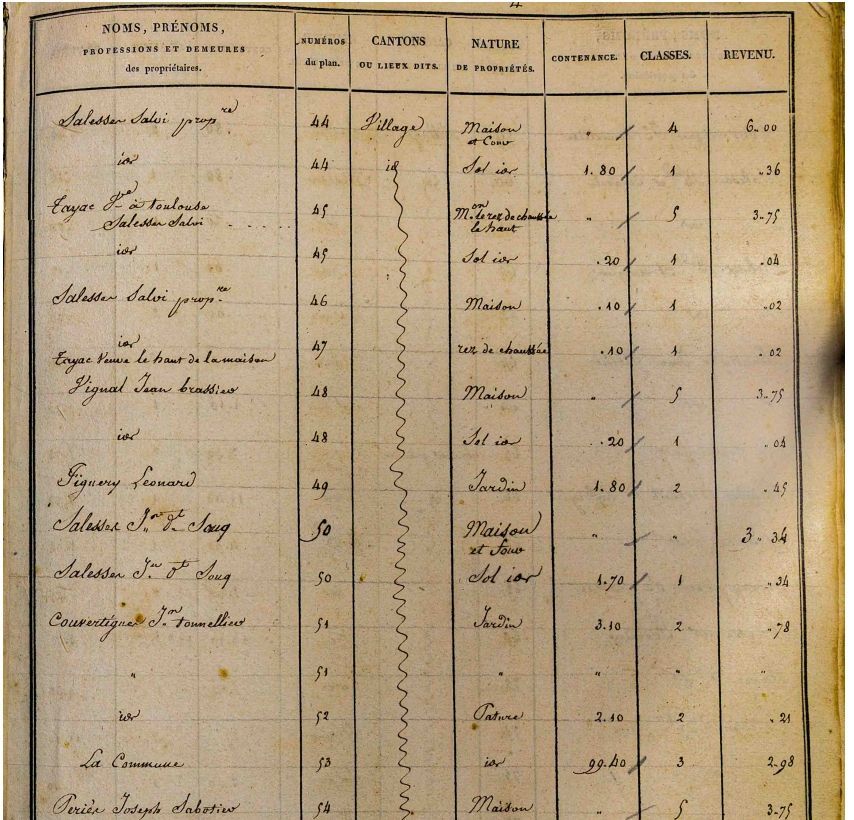 4
NOMS, PRÉNOMS, PROFESSIONS ET DEMEURES des propriétaires. NUMÉROS du plan. CANTONS OU LIEUX DITS. NATURE DE PROPRIÉTÉS. CONTENANCE. CLASSES. REVENU.
Salesser Salvi prop.re 44 Village Maison et Couv " 4 6.. 00
id 44 id Sol id 1.80 1 .. 36
Tayac Vve à toulouse 45 M.on le rez de chaussée " 5 3..75
Salesser Salvi ..... le haut
id 45 Sol id .20 1 .. 04
Salesser Salvi prop.re 46 Maison .10 1 .. 02
id 47 rez de chaussée .10 1 .. 02
Tayac Veuve le haut de la maison
Vignal Jean brassier 48 Maison " 5 3..75
id 48 Sol id .20 1 .. 04
Figuery Leonard 49 Jardin 1.80 2 .. 45
Salesser J.n dt Souq 50 Maison et Couv " " 3 .. 34
Salesser J.n dt Souq 50 Sol id 1.70 1 .. 34
Couvertigner J.n tonnellier 51 Jardin 3.10 2 .. 78
" 51 " " " "
id 52 Pature 2.10 2 .. 21
La Commune 53 id 99.40 3 2..98
Periés Joseph Sabotier 54 Maison " 5 3..75